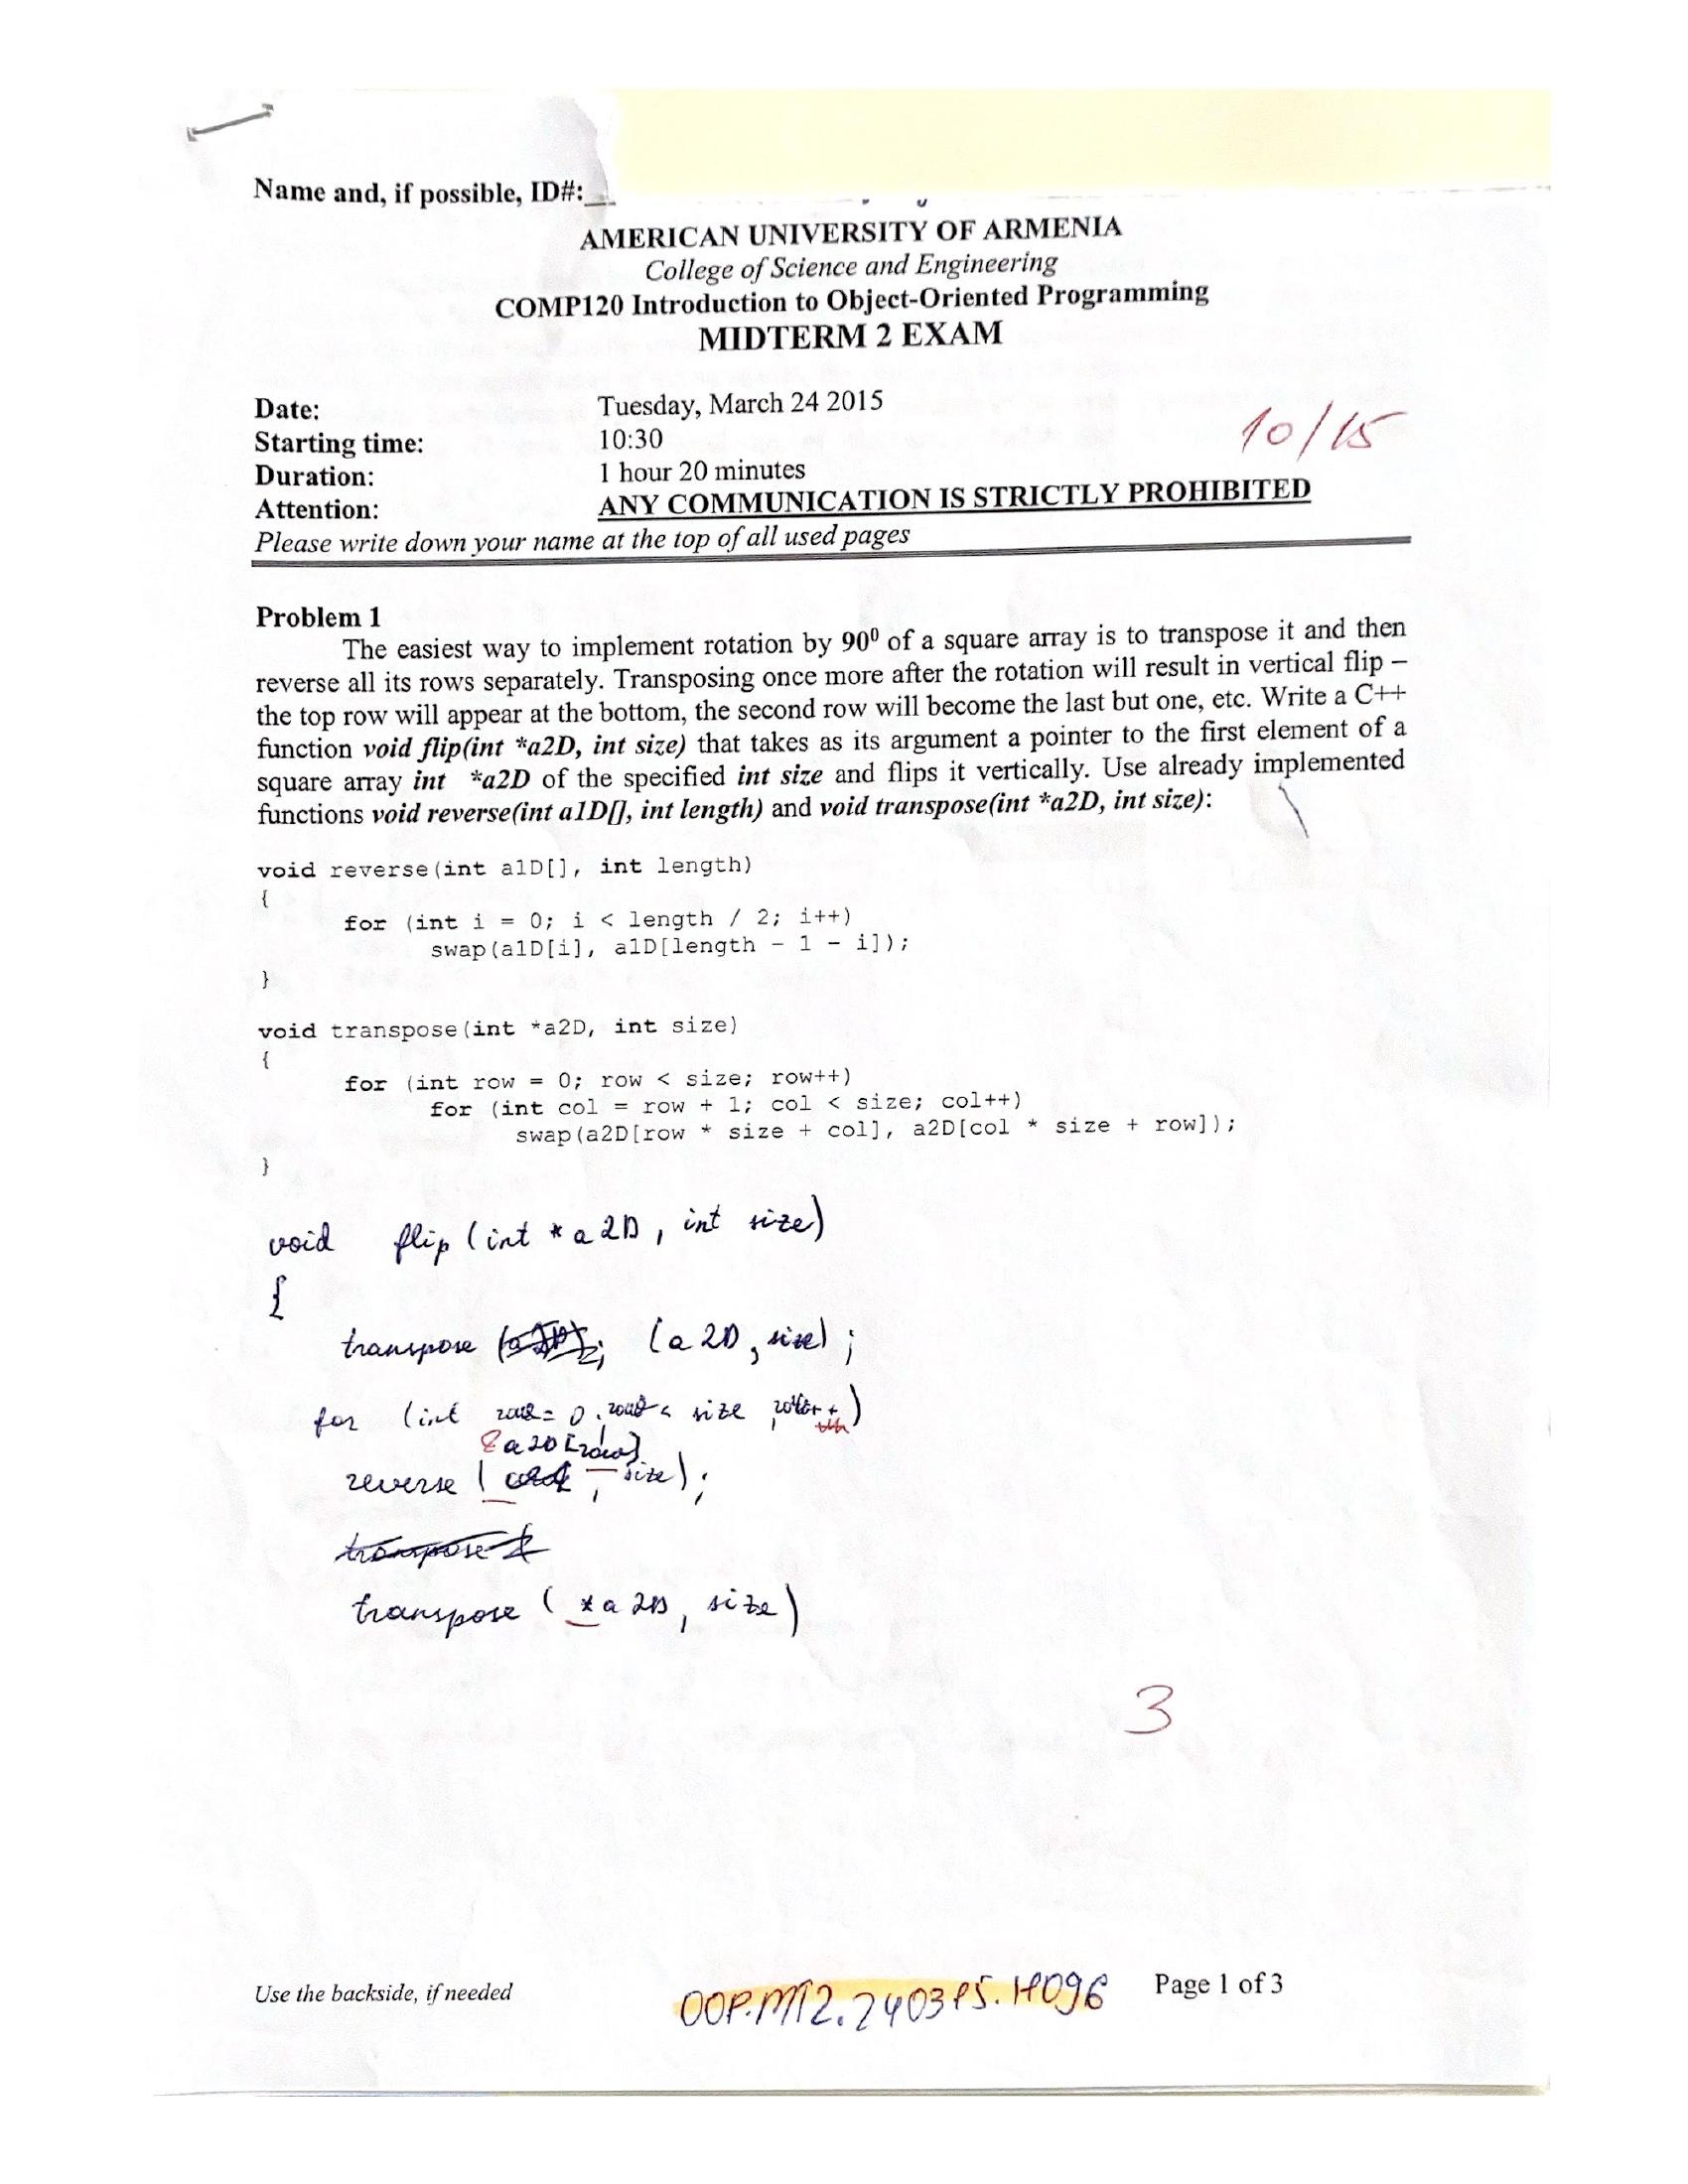 Name and, if possible, ID#:
AMERICAN UNIVERSITY OF ARMENIA
College of Science and Engineering
COMP120 Introduction to Object-Oriented Programming
MIDTERM 2 EXAM
Date: Tuesday, March 24 2015
10/15
Starting time: 10:30
Duration: 1 hour 20 minutes
Attention: ANY COMMUNICATION IS STRICTLY PROHIBITED
Please write down your name at the top of all used pages
Problem 1
The easiest way to implement rotation by 90⁰ of a square array is to transpose it and then
reverse all its rows separately. Transposing once more after the rotation will result in vertical flip –
the top row will appear at the bottom, the second row will become the last but one, etc. Write a C++
function void flip(int *a2D, int size) that takes as its argument a pointer to the first element of a
square array int *a2D of the specified int size and flips it vertically. Use already implemented
functions void reverse(int a1D[], int length) and void transpose(int *a2D, int size):
void reverse(int a1D[], int length)
{
for (int i = 0; i < length / 2; i++)
swap(a1D[i], a1D[length - 1 - i]);
}
void transpose(int *a2D, int size)
{
for (int row = 0; row < size; row++)
for (int col = row + 1; col < size; col++)
swap(a2D[row * size + col], a2D[col * size + row]);
}
void flip (int *a2D, int size)
{
transpose (a2D, size);
for (int row = 0; row < size; row++)
&a2D[row]
reverse ( , size);
transpose
transpose (*a2D, size)
3
Use the backside, if needed
OOP.MT2.240315.H096
Page 1 of 3